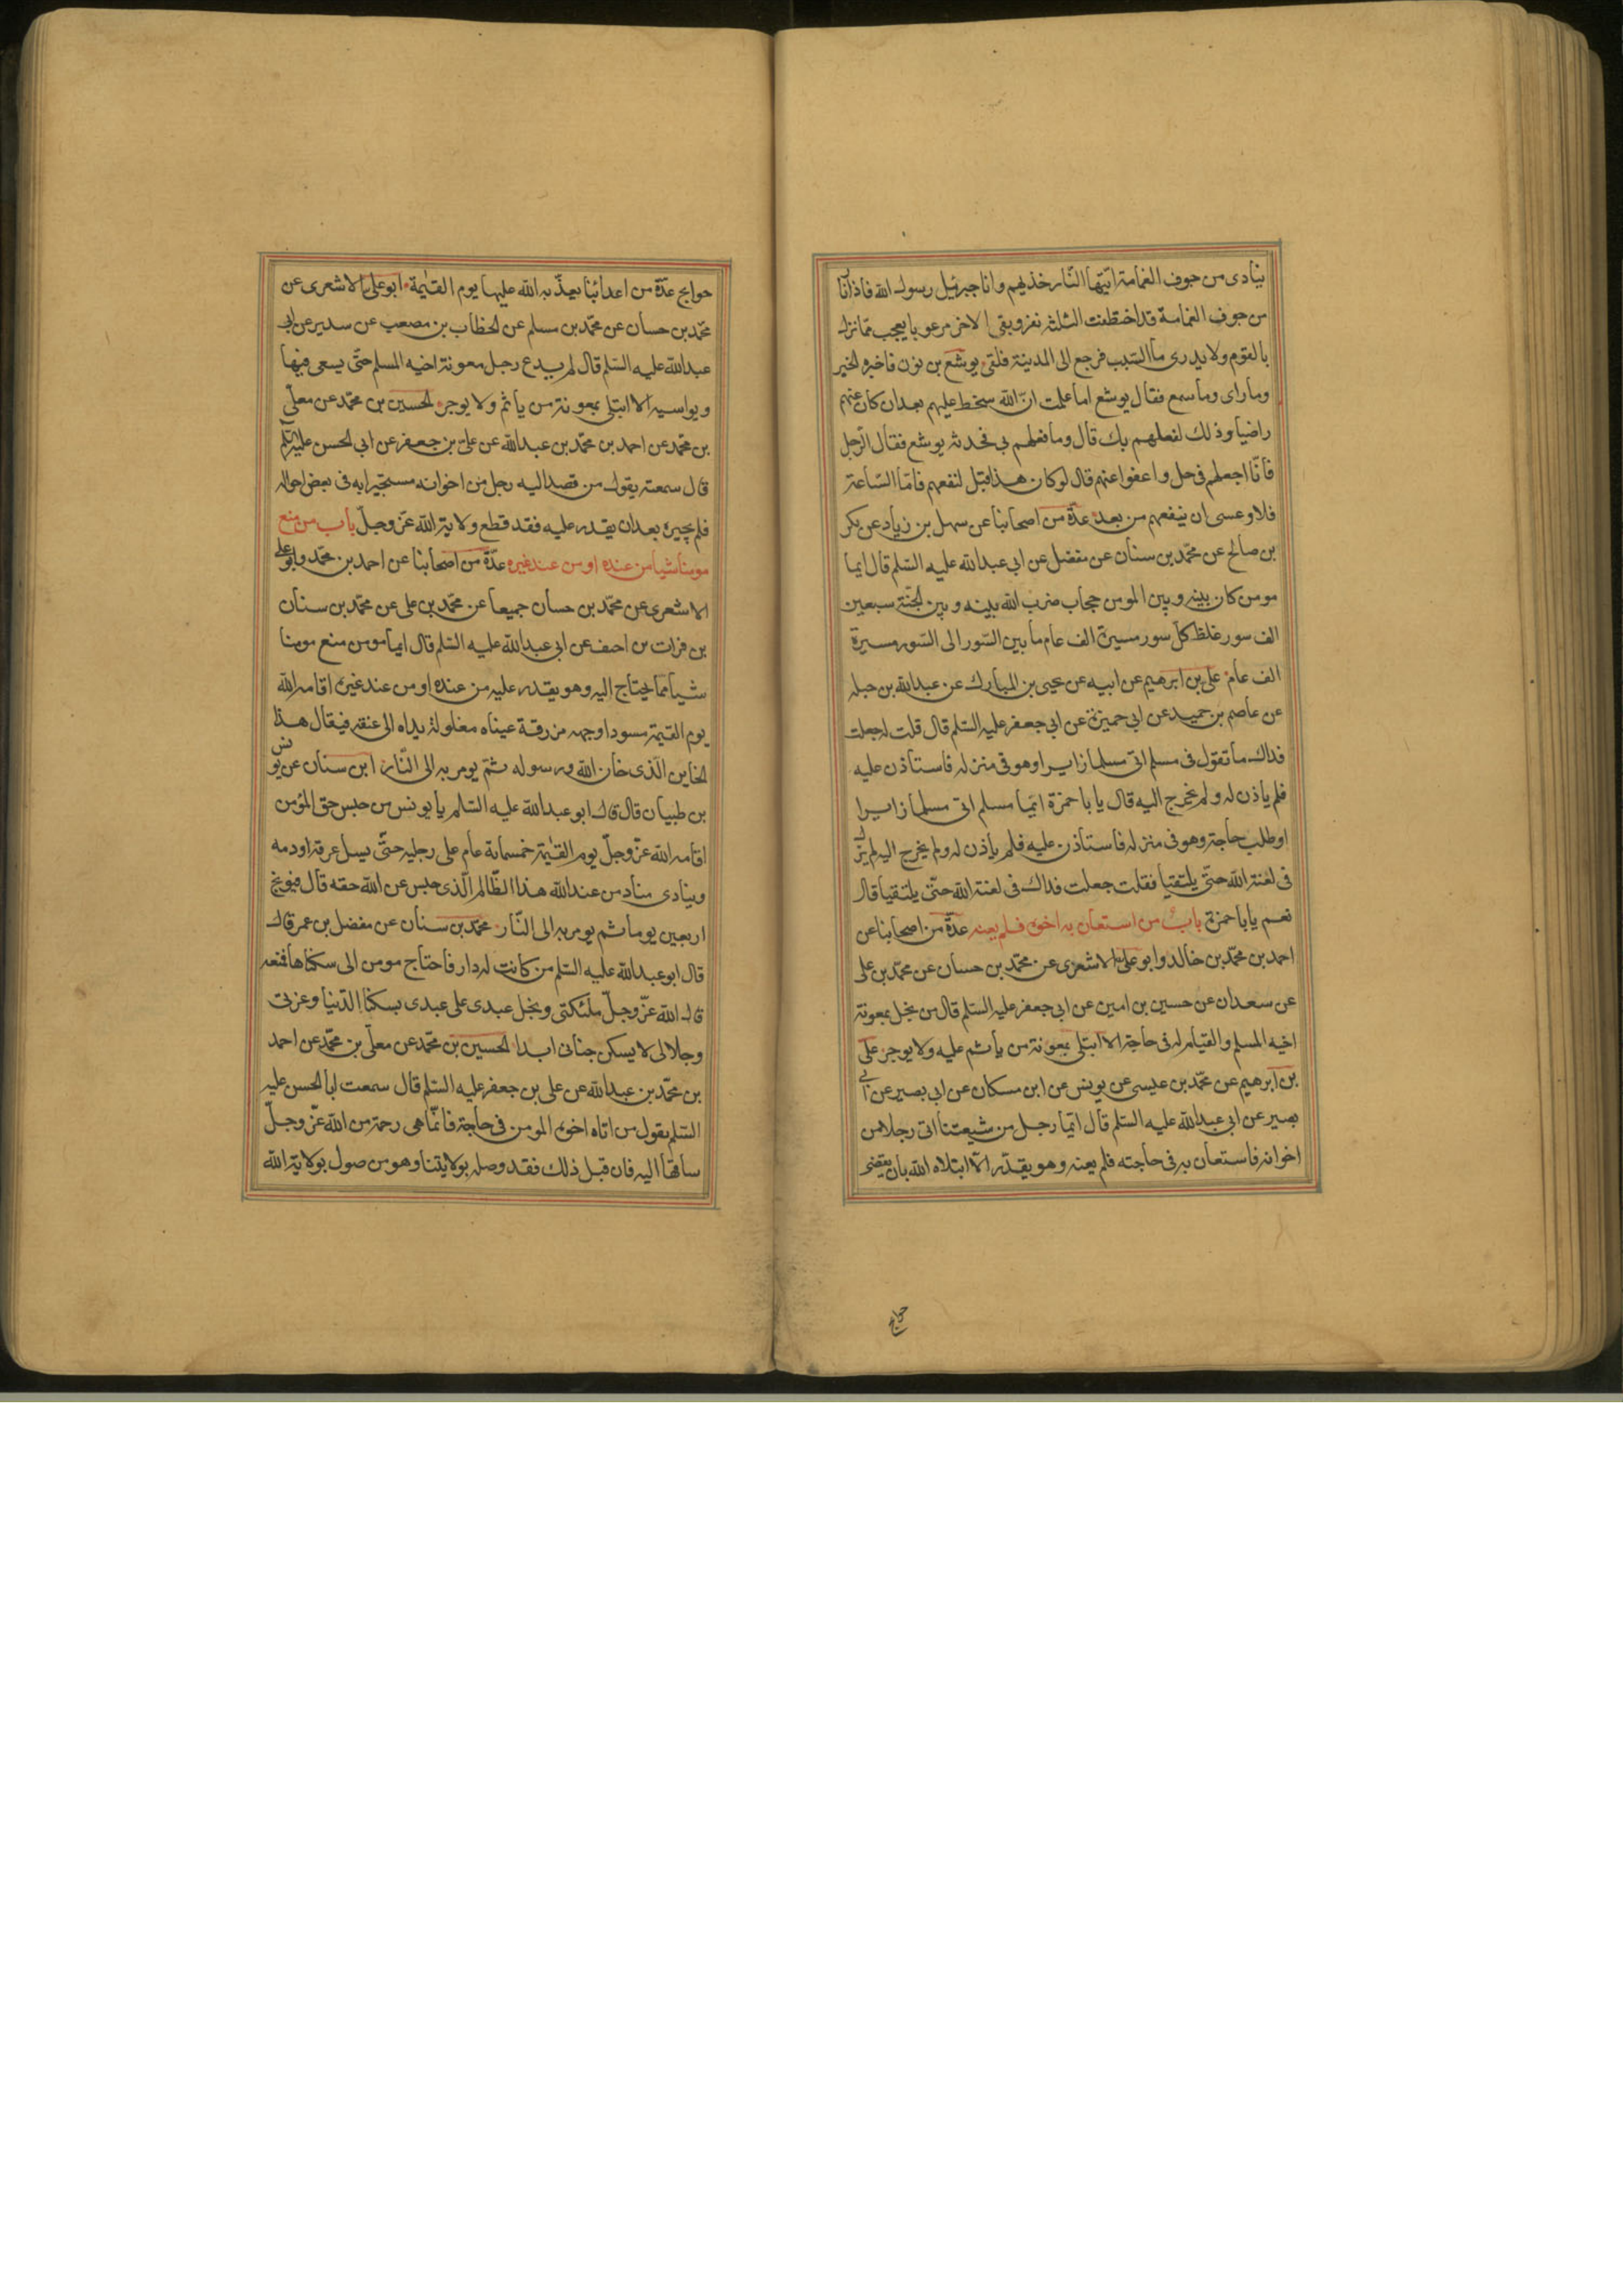 ينادى من جوف الغمامة ايتها النار خذيهم وانا جبرئيل رسول الله فاذا نار
من جوف الغمامة قد اختطفت الثلثة نفر وبقى الاخر مرعوبا يعجب مما نزل
بالقوم ولا يدرى ما السبب فرجع الى المدينة فلقى يوشع بن نون فاخبره الخبر
وما راى وما سمع فقال يوشع اما علمت ان الله سخط عليهم بعد ان كان عنهم
راضيا وذلك لفعلهم بك قال وما فعلهم بى فحدثه يوشع فقال الرجل
فانا اجعلهم فى حل واعفوا عنهم قال لو كان هذا قبل لنفعهم فاما الساعة
فلا وعسى ان ينفعهم من بعد عدة من اصحابنا عن سهل بن زياد عن بكر
بن صالح عن محمد بن سنان عن مفضل عن ابى عبد الله عليه السلم قال ايما
مومن كان بينه وبين المومن حجاب ضرب الله بينه وبين الجنة سبعين
الف سور غلظ كل سور مسيرة الف عام ما بين السور الى السور مسيرة
الف عام على بن ابرهيم عن ابيه عن يحيى بن المبارك عن عبد الله بن جبله
عن عاصم بن حميد عن ابى حمزة عن ابى جعفر عليه السلم قال قلت له جعلت
فداك ما تقول فى مسلم اتى مسلما زايرا وهو فى منزله فاستاذن عليه
فلم ياذن له ولم يخرج اليه قال يا با حمزة ايما مسلم اتى مسلما زايرا
او طلب حاجة وهو فى منزله فاستاذن عليه فلم ياذن له ولم يخرج اليه لم يزل
فى لعنة الله حتى يلتقيا فقلت جعلت فداك فى لعنة الله حتى يلتقيا قال
نعم يا با حمزة باب من استعان به اخوه فلم يعنه عدة من اصحابنا عن
احمد بن محمد بن خالد وابو على الاشعرى عن محمد بن حسان عن محمد بن على
عن سعدان عن حسين بن امين عن ابى جعفر عليه السلم قال من بخل بمعونة
اخيه المسلم والقيام له فى حاجة الا ابتلى بمعونة من ياثم عليه ولا يوجر على
بن ابرهيم عن محمد بن عيسى عن يونس عن ابن مسكان عن ابى بصير عن ابى
بصير عن ابى عبد الله عليه السلم قال ايما رجل من شيعتنا اتى رجلا من
اخوانه فاستعان به فى حاجته فلم يعنه وهو يقدر الا ابتلاه الله بان يقضى
حوايج
حوايج عدة من اعدائنا يعذبه الله عليها يوم القيمة ابو على الاشعرى عن
محمد بن حسان عن محمد بن مسلم عن الخطاب بن مصعب عن سدير عن ابى
عبد الله عليه السلم قال لم يدع رجل معونة اخيه المسلم حتى يسعى فيها
ويواسيه الا ابتلى بمعونة من ياثم ولا يوجر الحسين بن محمد عن معلى
بن محمد عن احمد بن محمد بن عبد الله عن على بن جعفر عن ابى الحسن عليه السلم
قال سمعته يقول من قصد اليه رجل من اخوانه مستجيرا به فى بعض احواله
فلم يجيره بعد ان يقدر عليه فقد قطع ولاية الله عز وجل باب من منع
مومنا شيا من عنده او من عند غيره عدة من اصحابنا عن احمد بن محمد وابو على
الاشعرى عن محمد بن حسان جميعا عن محمد بن على عن محمد بن سنان
بن فرات بن احنف عن ابى عبد الله عليه السلم قال ايما مومن منع مومنا
شيا مما يحتاج اليه وهو يقدر عليه من عنده او من عند غيره اقامه الله
يوم القيمة مسودا وجهه مزرقة عيناه مغلولة يداه الى عنقه فيقال هذا
الخاين الذى خان الله ورسوله ثم يومر به الى النار ابن سنان عن يونس
بن ظبيان قال قال ابو عبد الله عليه السلم يا يونس من حبس حق المؤمن
اقامه الله عز وجل يوم القيمة خمسماية عام على رجليه حتى يسيل عرقه او دمه
وينادى مناد من عند الله هذا الظالم الذى حبس عن الله حقه قال فيوبخ
اربعين يوما ثم يومر به الى النار محمد بن سنان عن مفضل بن عمر قال
قال ابو عبد الله عليه السلم من كانت له دار فاحتاج مومن الى سكناها فمنعه
قال الله عز وجل ملئكتى وبخل عبدى على عبدى بسكنا الدنيا وعزتى
وجلالى لا يسكن جنانى ابدا الحسين بن محمد عن معلى بن محمد عن احمد
بن محمد بن عبد الله عن على بن جعفر عليه السلم قال سمعت ابا الحسن عليه
السلم يقول من اتاه اخوه المومن فى حاجة فانما هى رحمة من الله عز وجل
ساقها اليه فان قبل ذلك فقد وصله بولايتنا وهو موصول بولاية الله